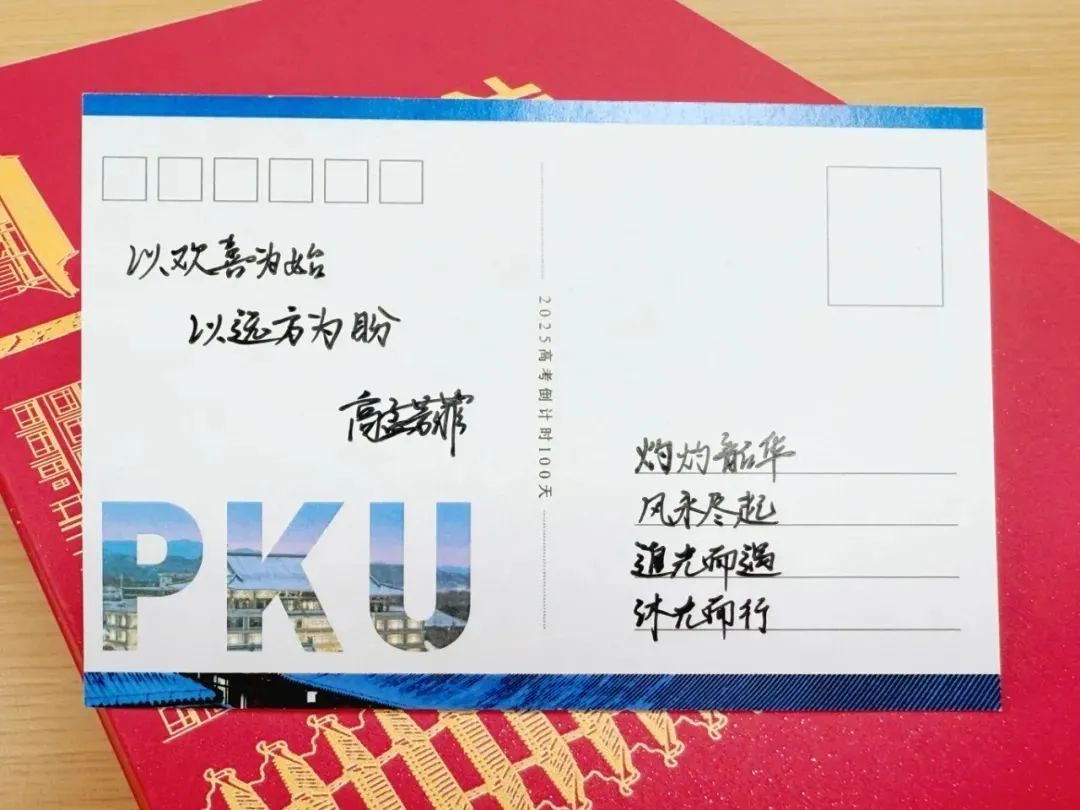 以欢喜为始
以远方为盼
高孟若
PKU
2025高考倒计时100天
灼灼韶华
风禾尽起
追光而遇
沐光而行